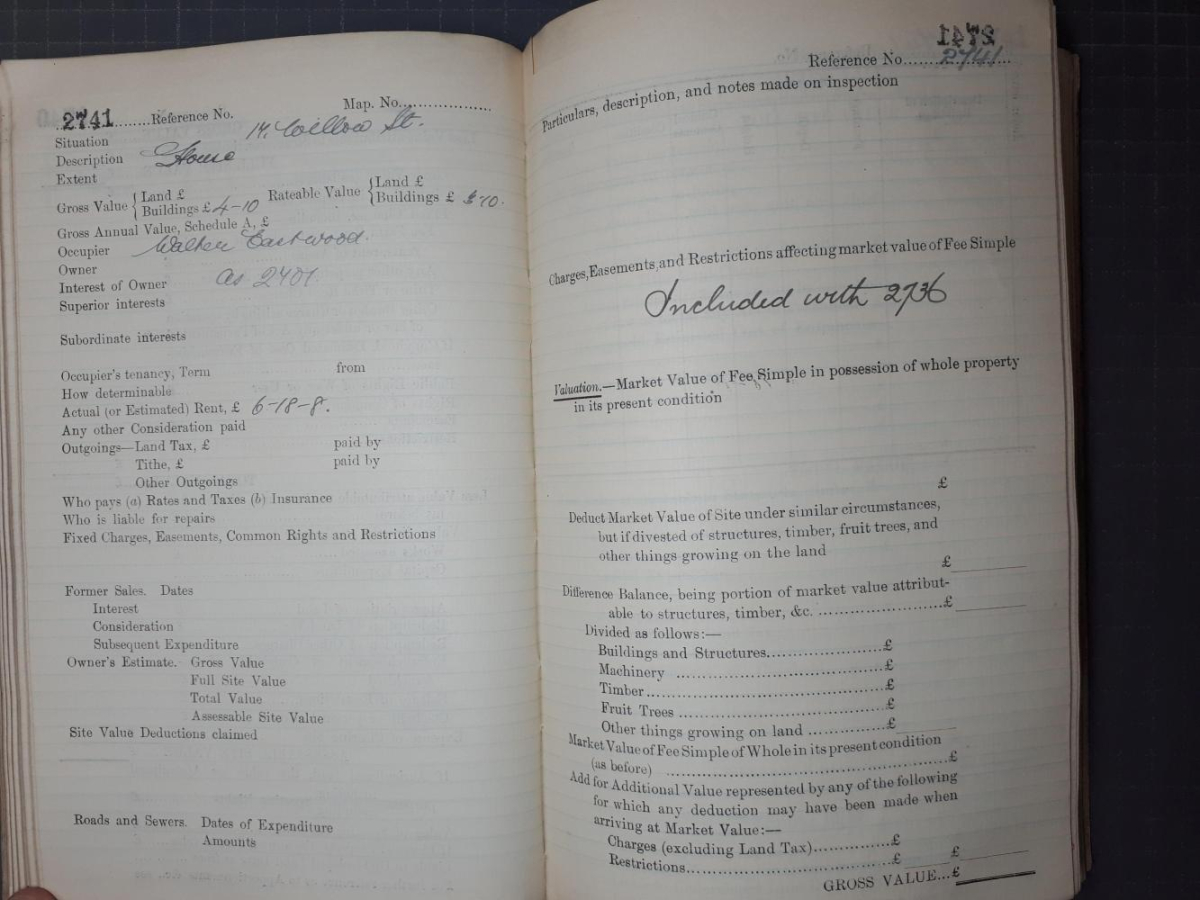 2741 ......... Reference No.
Map. No..................
Situation 14. Willow St.
Description House
Extent
Gross Value { Land £
Buildings £ 4-10
Rateable Value { Land £
Buildings £ 10.
Gross Annual Value, Schedule A, £
Occupier Walter Eastwood.
Owner
Interest of Owner as 2401
Superior interests
Subordinate interests
Occupier's tenancy, Term from
How determinable
Actual (or Estimated) Rent, £ 6-18-8.
Any other Consideration paid
Outgoings—Land Tax, £ paid by
Tithe, £ paid by
Other Outgoings
Who pays (a) Rates and Taxes (b) Insurance
Who is liable for repairs
Fixed Charges, Easements, Common Rights and Restrictions
Former Sales. Dates
Interest
Consideration
Subsequent Expenditure
Owner's Estimate. Gross Value
Full Site Value
Total Value
Assessable Site Value
Site Value Deductions claimed
Roads and Sewers. Dates of Expenditure
Amounts
2741
Reference No. 2741
Particulars, description, and notes made on inspection
Charges, Easements, and Restrictions affecting market value of Fee Simple
Included with 2736
Valuation.—Market Value of Fee Simple in possession of whole property
in its present condition
£
Deduct Market Value of Site under similar circumstances,
but if divested of structures, timber, fruit trees, and
other things growing on the land
£
Difference Balance, being portion of market value attribut-
able to structures, timber, &c. ........................£
Divided as follows:—
Buildings and Structures.....................£
Machinery .....................................£
Timber..........................................£
Fruit Trees ....................................£
Other things growing on land ...............£
Market Value of Fee Simple of Whole in its present condition
(as before) ..................................................£
Add for Additional Value represented by any of the following
for which any deduction may have been made when
arriving at Market Value:—
Charges (excluding Land Tax)...............£
Restrictions.....................................£ £
GROSS VALUE...£